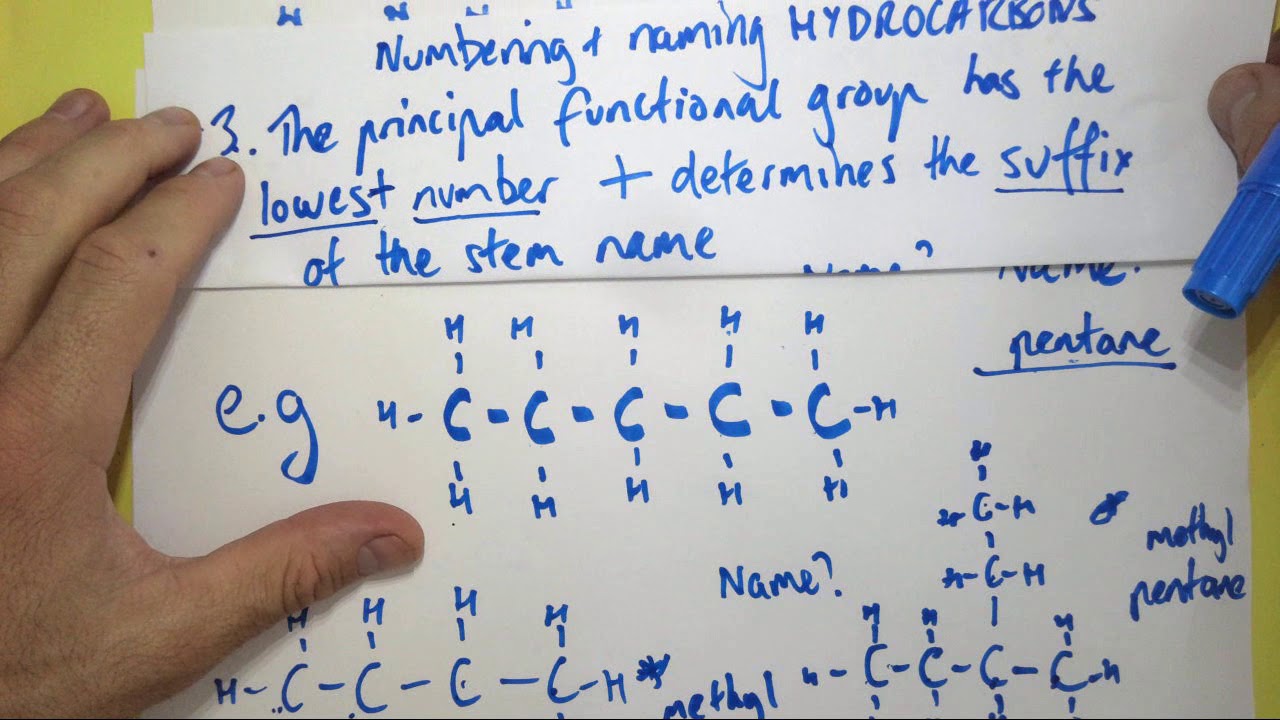 Numbering + naming HYDROCARBONS
3. The principal functional group has the
lowest number + determines the suffix
of the stem name
Name?
pentane
H H H H H
e.g H-C-C-C-C-C-H
H H H H H
H
H-C-H
methyl
Name? H-C-H pentane
H H H H H H H
H-C-C-C-C-H * H-C-C-C-C-H
methyl